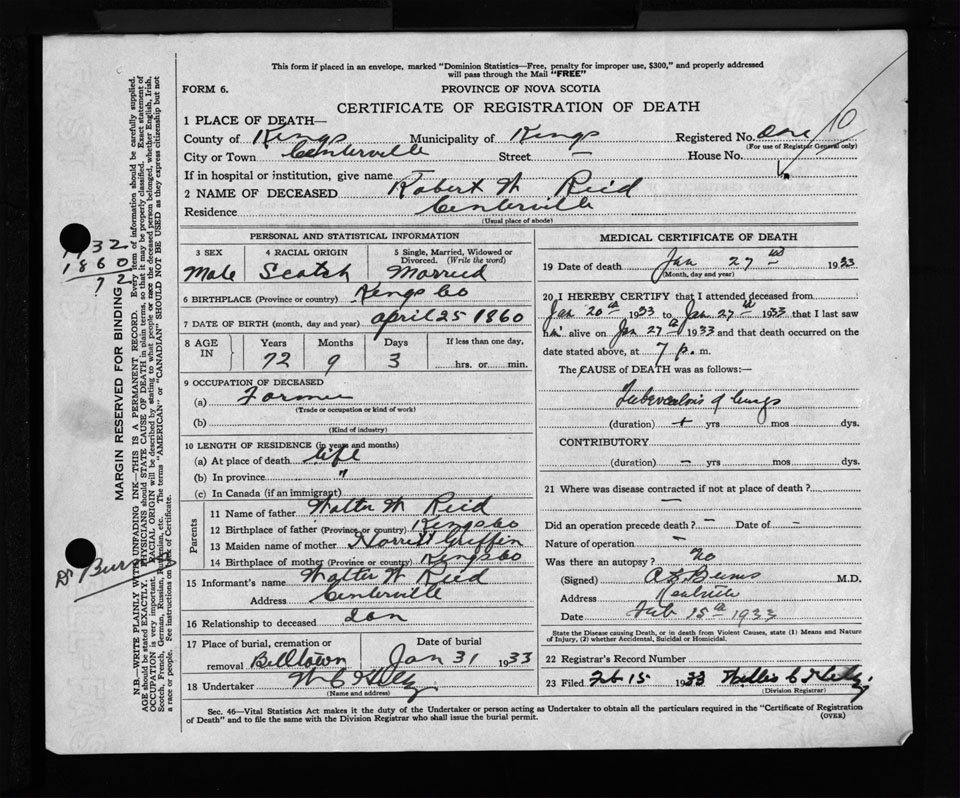 This form if placed in an envelope, marked "Dominion Statistics—Free, penalty for improper use, $300," and properly addressed
will pass through the Mail "FREE"
FORM 6.
PROVINCE OF NOVA SCOTIA
CERTIFICATE OF REGISTRATION OF DEATH
1 PLACE OF DEATH—
County of Kings Municipality of Kings Registered No. One 10
(For use of Registrar General only)
City or Town Centerville Street — House No.
If in hospital or institution, give name
2 NAME OF DECEASED Robert W Reid
Residence Centerville
(Usual place of abode)
PERSONAL AND STATISTICAL INFORMATION
3 SEX 4 RACIAL ORIGIN 5 Single, Married, Widowed or Divorced. (Write the word)
Male Scotch Married
6 BIRTHPLACE (Province or country) Kings Co
7 DATE OF BIRTH (month, day and year) April 25 1860
8 AGE IN Years Months Days If less than one day,
72 9 3 hrs. or min.
9 OCCUPATION OF DECEASED
(a) Farmer
(Trade or occupation or kind of work)
(b)
(Kind of industry)
10 LENGTH OF RESIDENCE (in years and months)
(a) At place of death life
(b) In province "
(c) In Canada (if an immigrant)
Parents
11 Name of father Walter W Reid
12 Birthplace of father (Province or country) Kings Co
13 Maiden name of mother Griffin
14 Birthplace of mother (Province or country) Kings Co
15 Informant's name Walter W Reid
Address Centerville
16 Relationship to deceased Son
17 Place of burial, cremation or Date of burial
removal Billtown Jan 31 1933
18 Undertaker W C
(Name and address)
MEDICAL CERTIFICATE OF DEATH
19 Date of death Jan 27th 1933
(Month, day and year)
20 I HEREBY CERTIFY that I attended deceased from
Jan 20th 1933 to Jan 27th 1933 that I last saw
him alive on Jan 27th 1933 and that death occurred on the
date stated above, at 7 p. m.
The CAUSE of DEATH was as follows:—
Tuberculosis of lungs
(duration) + yrs mos dys.
CONTRIBUTORY
(duration) — yrs mos dys.
21 Where was disease contracted if not at place of death?
—
Did an operation precede death? — Date of —
Nature of operation —
Was there an autopsy? No
(Signed) Burns M.D.
Address Kentville
Date Feb 15th 1933
State the Disease causing Death, or in death from Violent Causes, state (1) Means and Nature
of Injury, (2) whether Accidental, Suicidal or Homicidal.
22 Registrar's Record Number
23 Filed Feb 15 1933 Willis C
(Division Registrar)
Sec. 46—Vital Statistics Act makes it the duty of the Undertaker or person acting as Undertaker to obtain all the particulars required in the "Certificate of Registration
of Death" and to file the same with the Division Registrar who shall issue the burial permit.
(OVER)
1932
1860
72
Dr Burns
MARGIN RESERVED FOR BINDING
N.B.—WRITE PLAINLY WITH UNFADING INK—THIS IS A PERMANENT RECORD. Every item of information should be carefully supplied.
AGE should be stated EXACTLY. PHYSICIANS should STATE CAUSE OF DEATH in plain terms, so that it may be properly classified. Exact statement of
OCCUPATION is very important. RACIAL ORIGIN will be described by stating to what people or race the deceased person belonged, whether English, Irish,
Scotch, French, German, Russian, Ruthenian, etc. The terms "AMERICAN" or "CANADIAN" SHOULD NOT BE USED as they express citizenship but not
a race or people. See instructions on back of Certificate.